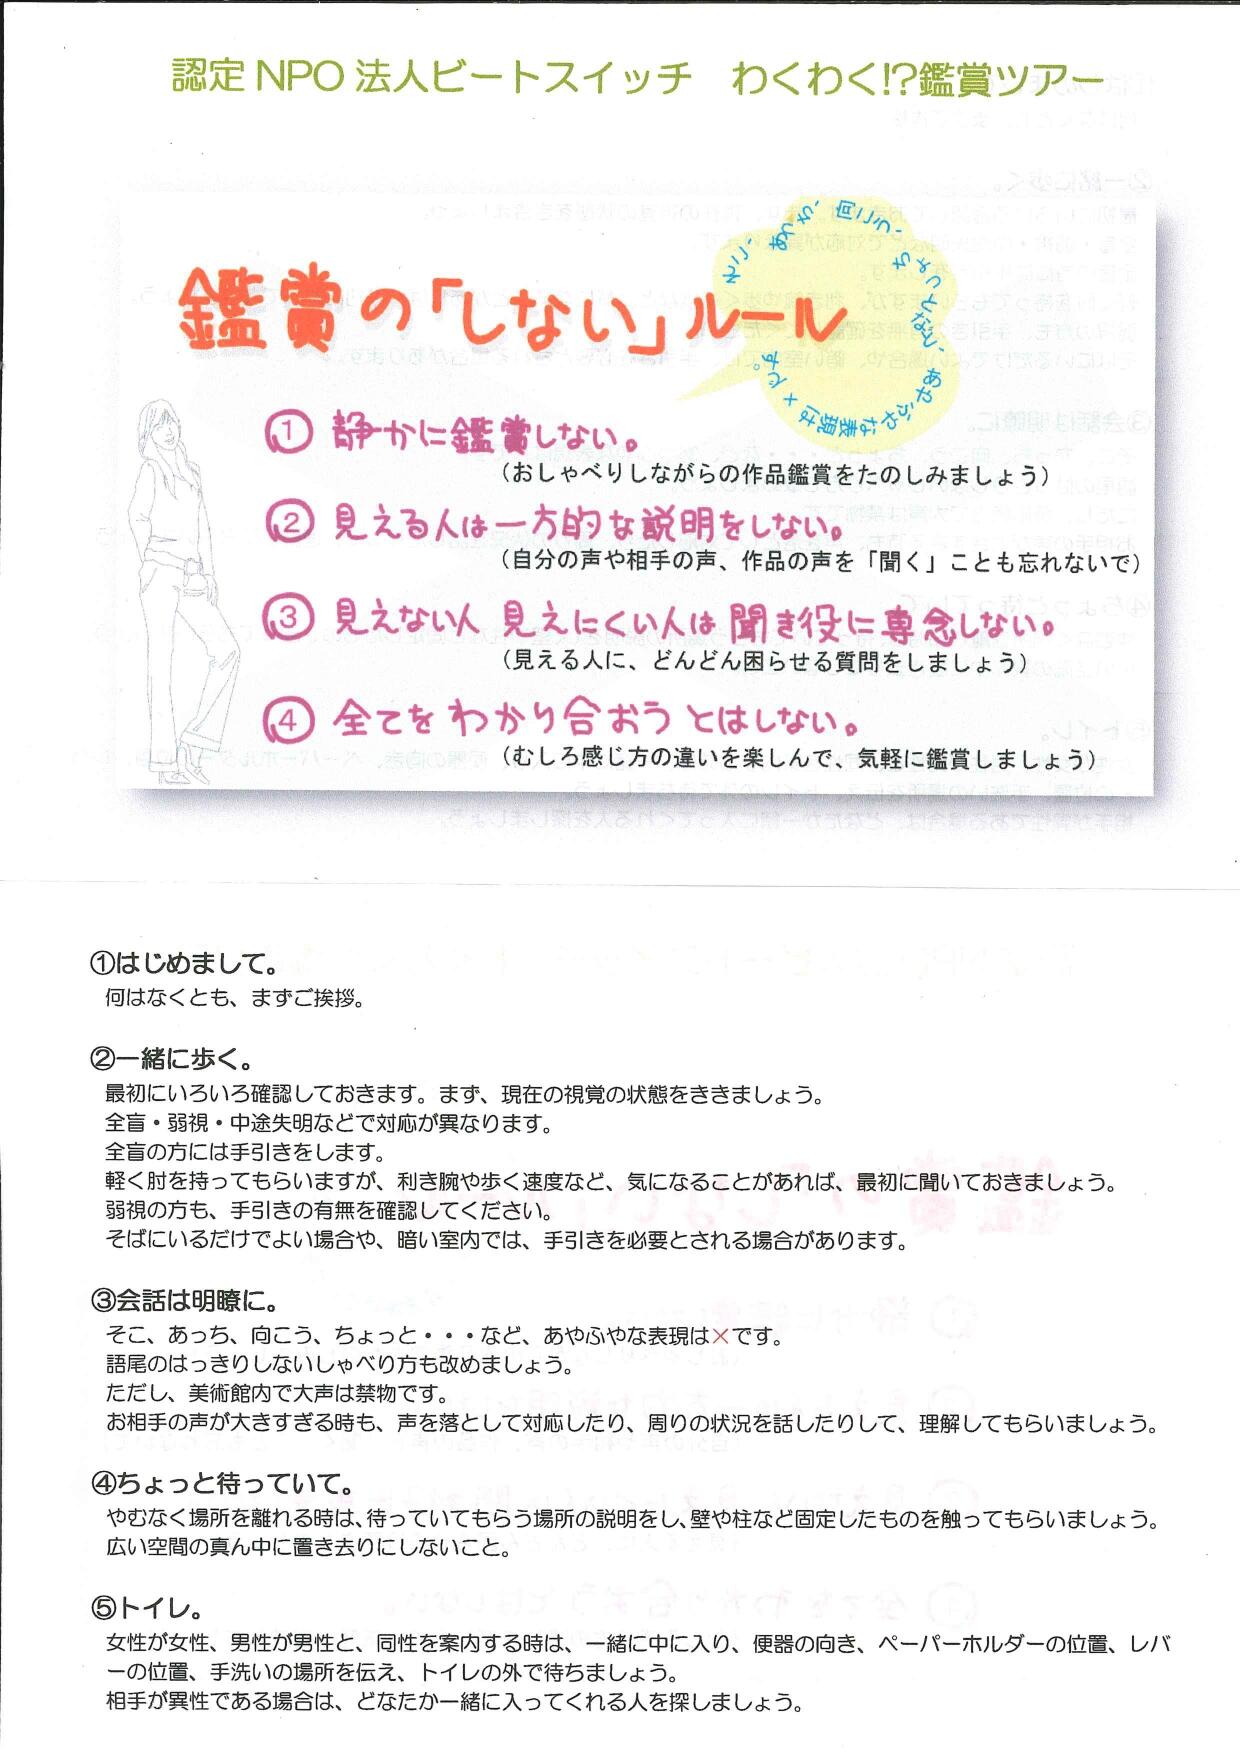 認定 NPO 法人ビートスイッチ　わくわく!?鑑賞ツアー
鑑賞の「しない」ルール
そこ、あっち、向こう、ちょっとなど、あやふやな表現は×です。
① 静かに鑑賞しない。
（おしゃべりしながらの作品鑑賞をたのしみましょう）
② 見える人は一方的な説明をしない。
（自分の声や相手の声、作品の声を「聞く」ことも忘れないで）
③ 見えない人 見えにくい人は聞き役に専念しない。
（見える人に、どんどん困らせる質問をしましょう）
④ 全てをわかり合おうとはしない。
（むしろ感じ方の違いを楽しんで、気軽に鑑賞しましょう）
①はじめまして。
何はなくとも、まずご挨拶。
②一緒に歩く。
最初にいろいろ確認しておきます。まず、現在の視覚の状態をききましょう。
全盲・弱視・中途失明などで対応が異なります。
全盲の方には手引きをします。
軽く肘を持ってもらいますが、利き腕や歩く速度など、気になることがあれば、最初に聞いておきましょう。
弱視の方も、手引きの有無を確認してください。
そばにいるだけでよい場合や、暗い室内では、手引きを必要とされる場合があります。
③会話は明瞭に。
そこ、あっち、向こう、ちょっと・・・など、あやふやな表現は×です。
語尾のはっきりしないしゃべり方も改めましょう。
ただし、美術館内で大声は禁物です。
お相手の声が大きすぎる時も、声を落として対応したり、周りの状況を話したりして、理解してもらいましょう。
④ちょっと待っていて。
やむなく場所を離れる時は、待っていてもらう場所の説明をし、壁や柱など固定したものを触ってもらいましょう。
広い空間の真ん中に置き去りにしないこと。
⑤トイレ。
女性が女性、男性が男性と、同性を案内する時は、一緒に中に入り、便器の向き、ペーパーホルダーの位置、レバ
ーの位置、手洗いの場所を伝え、トイレの外で待ちましょう。
相手が異性である場合は、どなたか一緒に入ってくれる人を探しましょう。